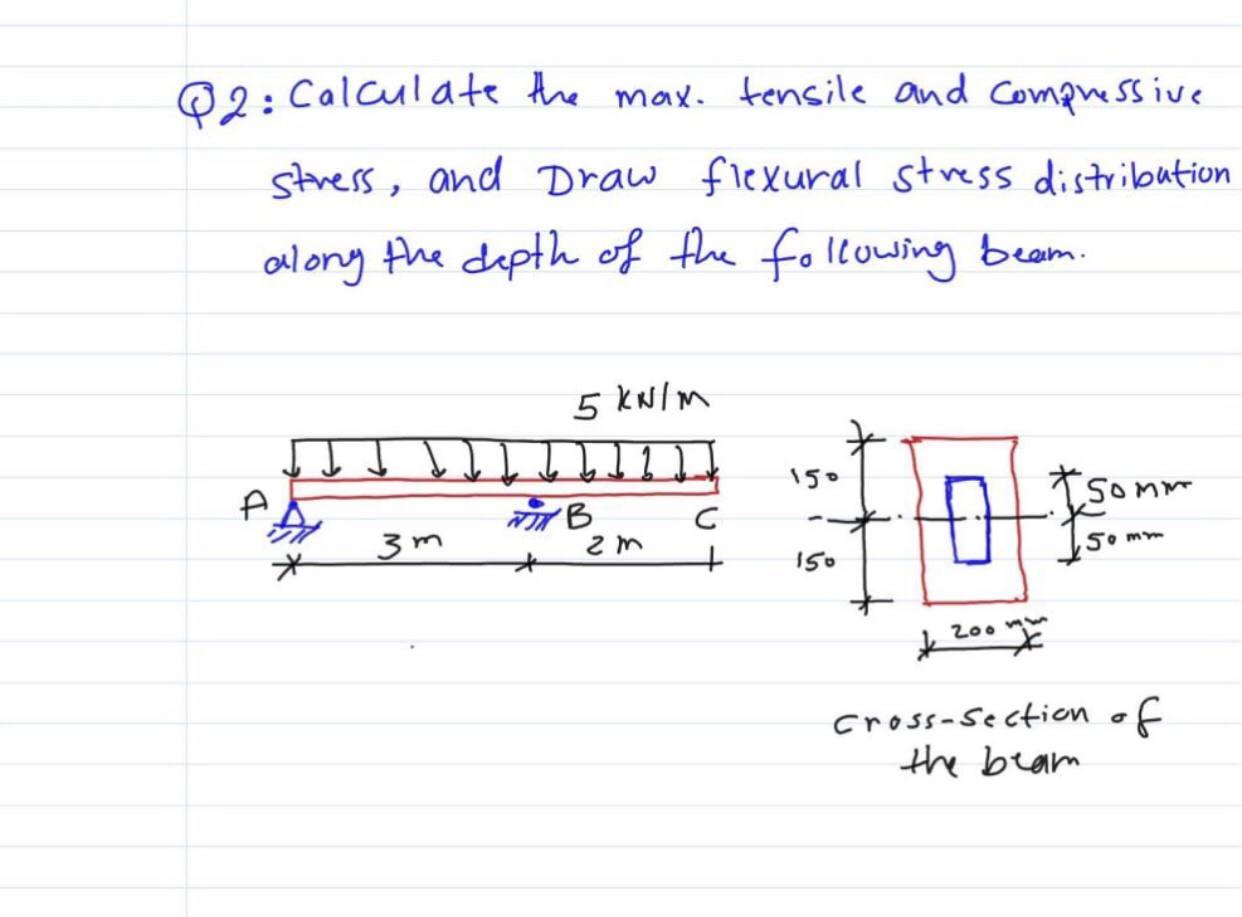 Q2: Calculate the max. tensile and compressive
stress, and Draw flexural stress distribution
along the depth of the following beam.
5 kN/m
A
B
C
3 m
2 m
150
150
50 mm
50 mm
200 mm
cross-section of
the beam